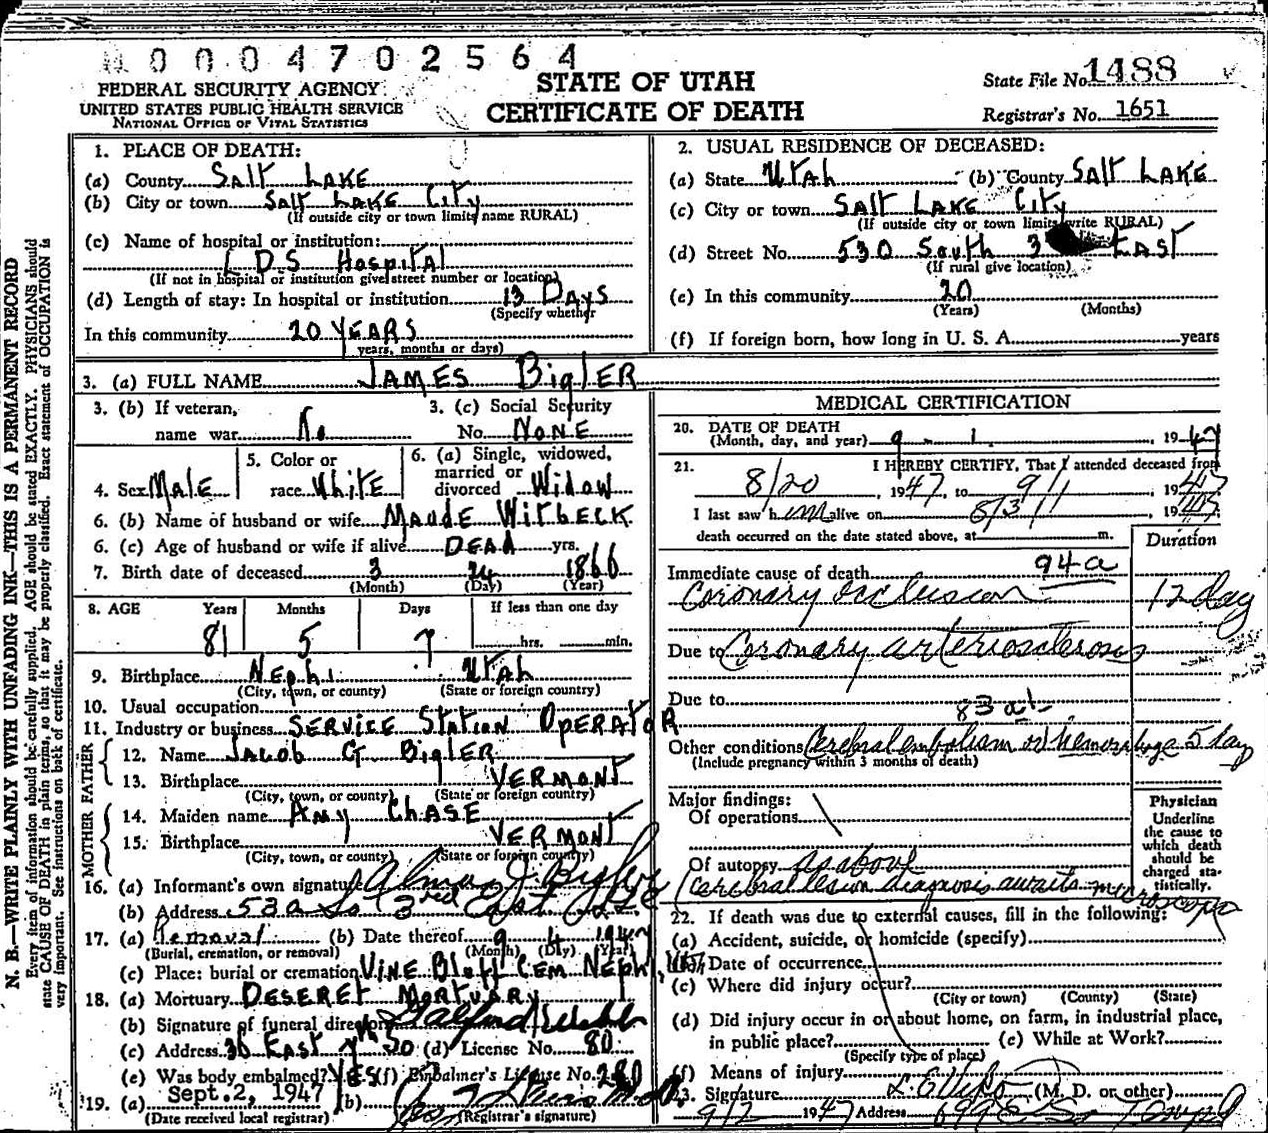 0 0 0 4 7 0 2 5 6 4
FEDERAL SECURITY AGENCY
UNITED STATES PUBLIC HEALTH SERVICE
NATIONAL OFFICE OF VITAL STATISTICS
STATE OF UTAH
CERTIFICATE OF DEATH
State File No. 1488
Registrar's No. 1651
N. B.—WRITE PLAINLY WITH UNFADING INK—THIS IS A PERMANENT RECORD
Every item of information should be carefully supplied. AGE should be stated EXACTLY. PHYSICIANS should
state CAUSE OF DEATH in plain terms, so that it may be properly classified. Exact statement of OCCUPATION is
very important. See instructions on back of certificate.
1. PLACE OF DEATH:
(a) County SALT LAKE
(b) City or town SALT LAKE CITY
(If outside city or town limits name RURAL)
(c) Name of hospital or institution:
L D S HOSPITAL
(If not in hospital or institution give street number or location)
(d) Length of stay: In hospital or institution 13 DAYS
(Specify whether
In this community 20 YEARS
years, months or days)
2. USUAL RESIDENCE OF DECEASED:
(a) State UTAH (b) County SALT LAKE
(c) City or town SALT LAKE CITY
(If outside city or town limits write RURAL)
(d) Street No. 530 South 3 EAST
(If rural give location)
(e) In this community 20
(Years) (Months)
(f) If foreign born, how long in U. S. A. years
3. (a) FULL NAME JAMES BIGLER
3. (b) If veteran, name war No
3. (c) Social Security No. NONE
4. Sex MALE
5. Color or race WHITE
6. (a) Single, widowed, married or divorced WIDOW
6. (b) Name of husband or wife MAUDE WITBECK
6. (c) Age of husband or wife if alive DEAD yrs.
7. Birth date of deceased 3 24 1866
(Month) (Day) (Year)
8. AGE Years Months Days If less than one day
81 5 7 hrs. min.
9. Birthplace NEPHI UTAH
(City, town, or county) (State or foreign country)
10. Usual occupation
11. Industry or business SERVICE STATION OPERATOR
FATHER
12. Name JACOB G BIGLER
13. Birthplace VERMONT
(City, town, or county) (State or foreign country)
MOTHER
14. Maiden name AMY CHASE
15. Birthplace VERMONT
(City, town, or county) (State or foreign country)
16. (a) Informant's own signature Alma J. Bigler
(b) Address 530 So 3rd East
17. (a) Removal (b) Date thereof 9 4 1947
(Burial, cremation, or removal) (Month) (Day) (Year)
(c) Place: burial or cremation VINE BLUFF CEM NEPHI, UTAH
18. (a) Mortuary DESERET MORTUARY
(b) Signature of funeral director Webb
(c) Address 36 EAST 7th SO (d) License No. 80
(e) Was body embalmed? YES (f) Embalmer's License No. 280
19. (a) Sept. 2, 1947 (b) M.D.
(Date received local registrar) (Registrar's signature)
MEDICAL CERTIFICATION
20. DATE OF DEATH
(Month, day, and year) 9 - 1 , 1947
21. I HEREBY CERTIFY, That I attended deceased from
8/20, 1947, to 9/1, 1947
I last saw him alive on 8/31, 1947
death occurred on the date stated above, at m.
Duration
Immediate cause of death 94a
Coronary occlusion 12 day
Due to Coronary arteriosclerosis
Due to
83 a
Other conditions Cerebral embolism or hemorrhage 5 day
(Include pregnancy within 3 months of death)
Major findings:
Of operations
Of autopsy as above
(cerebral lesion diagnosis awaits microscopic
Physician
Underline the cause to which death should be charged statistically.
22. If death was due to external causes, fill in the following:
(a) Accident, suicide, or homicide (specify)
(b) Date of occurrence
(c) Where did injury occur?
(City or town) (County) (State)
(d) Did injury occur in or about home, on farm, in industrial place,
in public place? (e) While at Work?
(Specify type of place)
(f) Means of injury
23. Signature (M. D. or other)
9/2 1947 Address 699 E So Temple